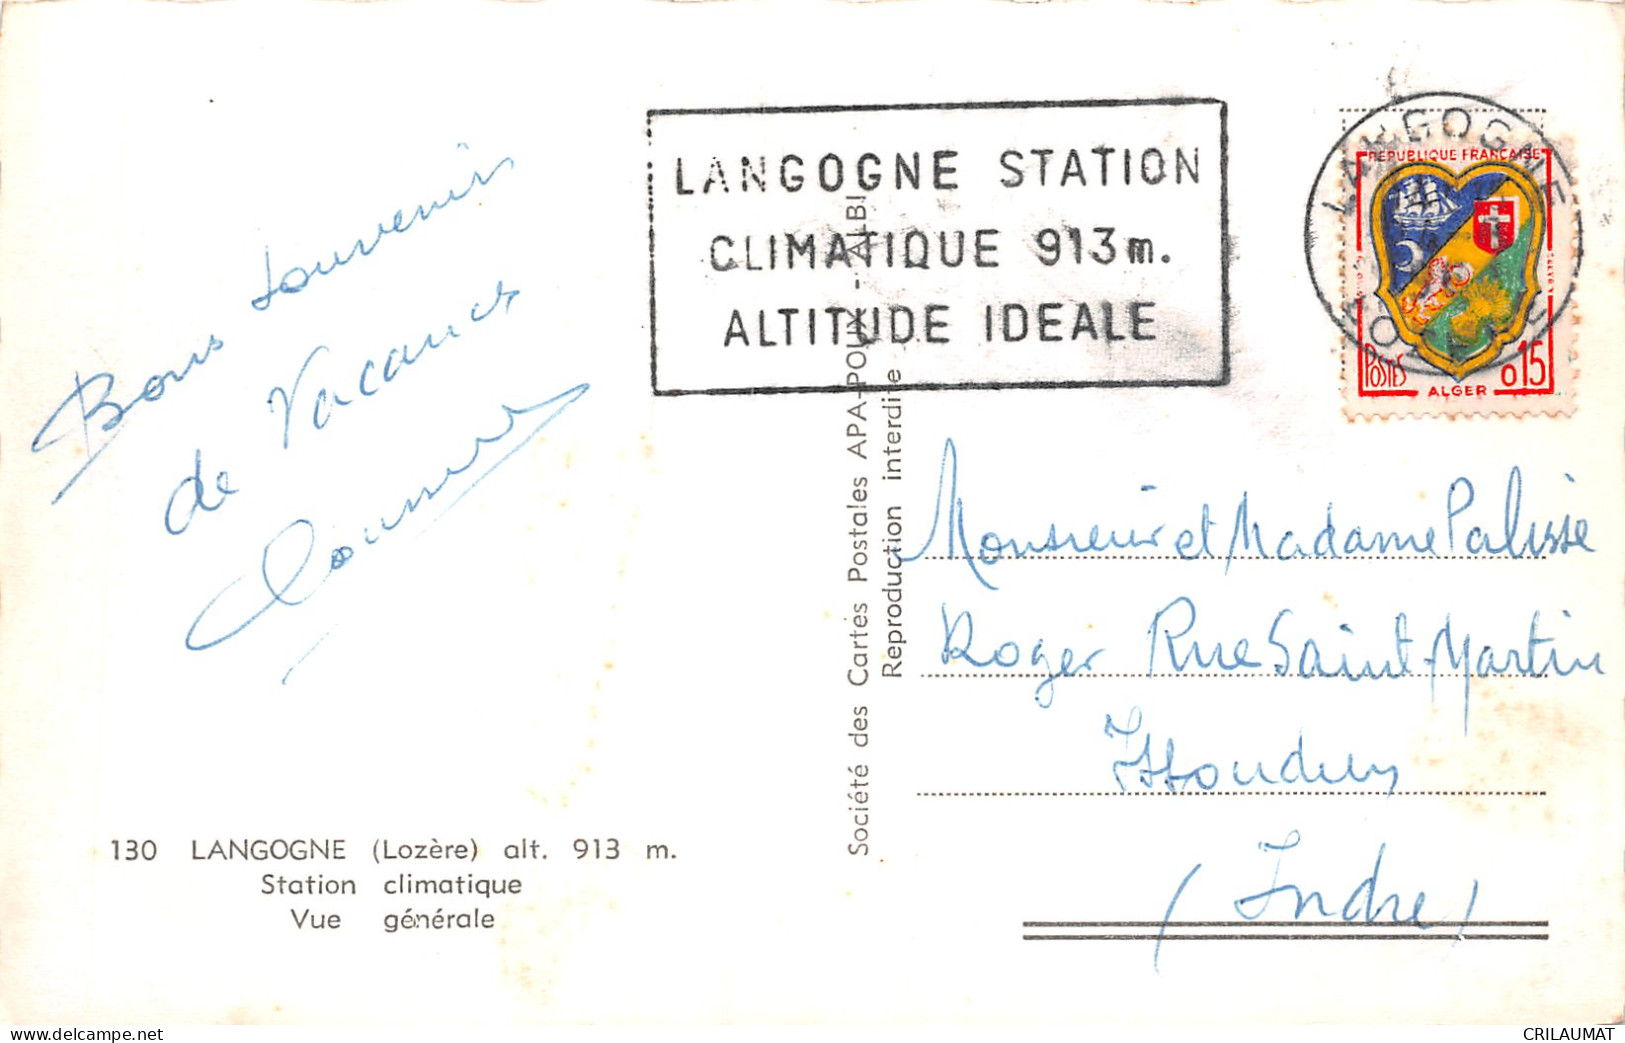 Bons souvenirs
de Vacances
130 LANGOGNE (Lozère) alt. 913 m.
Station climatique
Vue générale
Société des Cartes Postales APA-POUX - ALBI
Reproduction interdite
LANGOGNE STATION
CLIMATIQUE 913 m.
ALTITUDE IDEALE
LANGOGNE
LOZERE
REPUBLIQUE FRANÇAISE
POSTES
ALGER
0.15
Monsieur et Madame Palisse
Roger Rue Saint-Martin
Issoudun
(Indre)
delcampe.net
CRILAUMAT